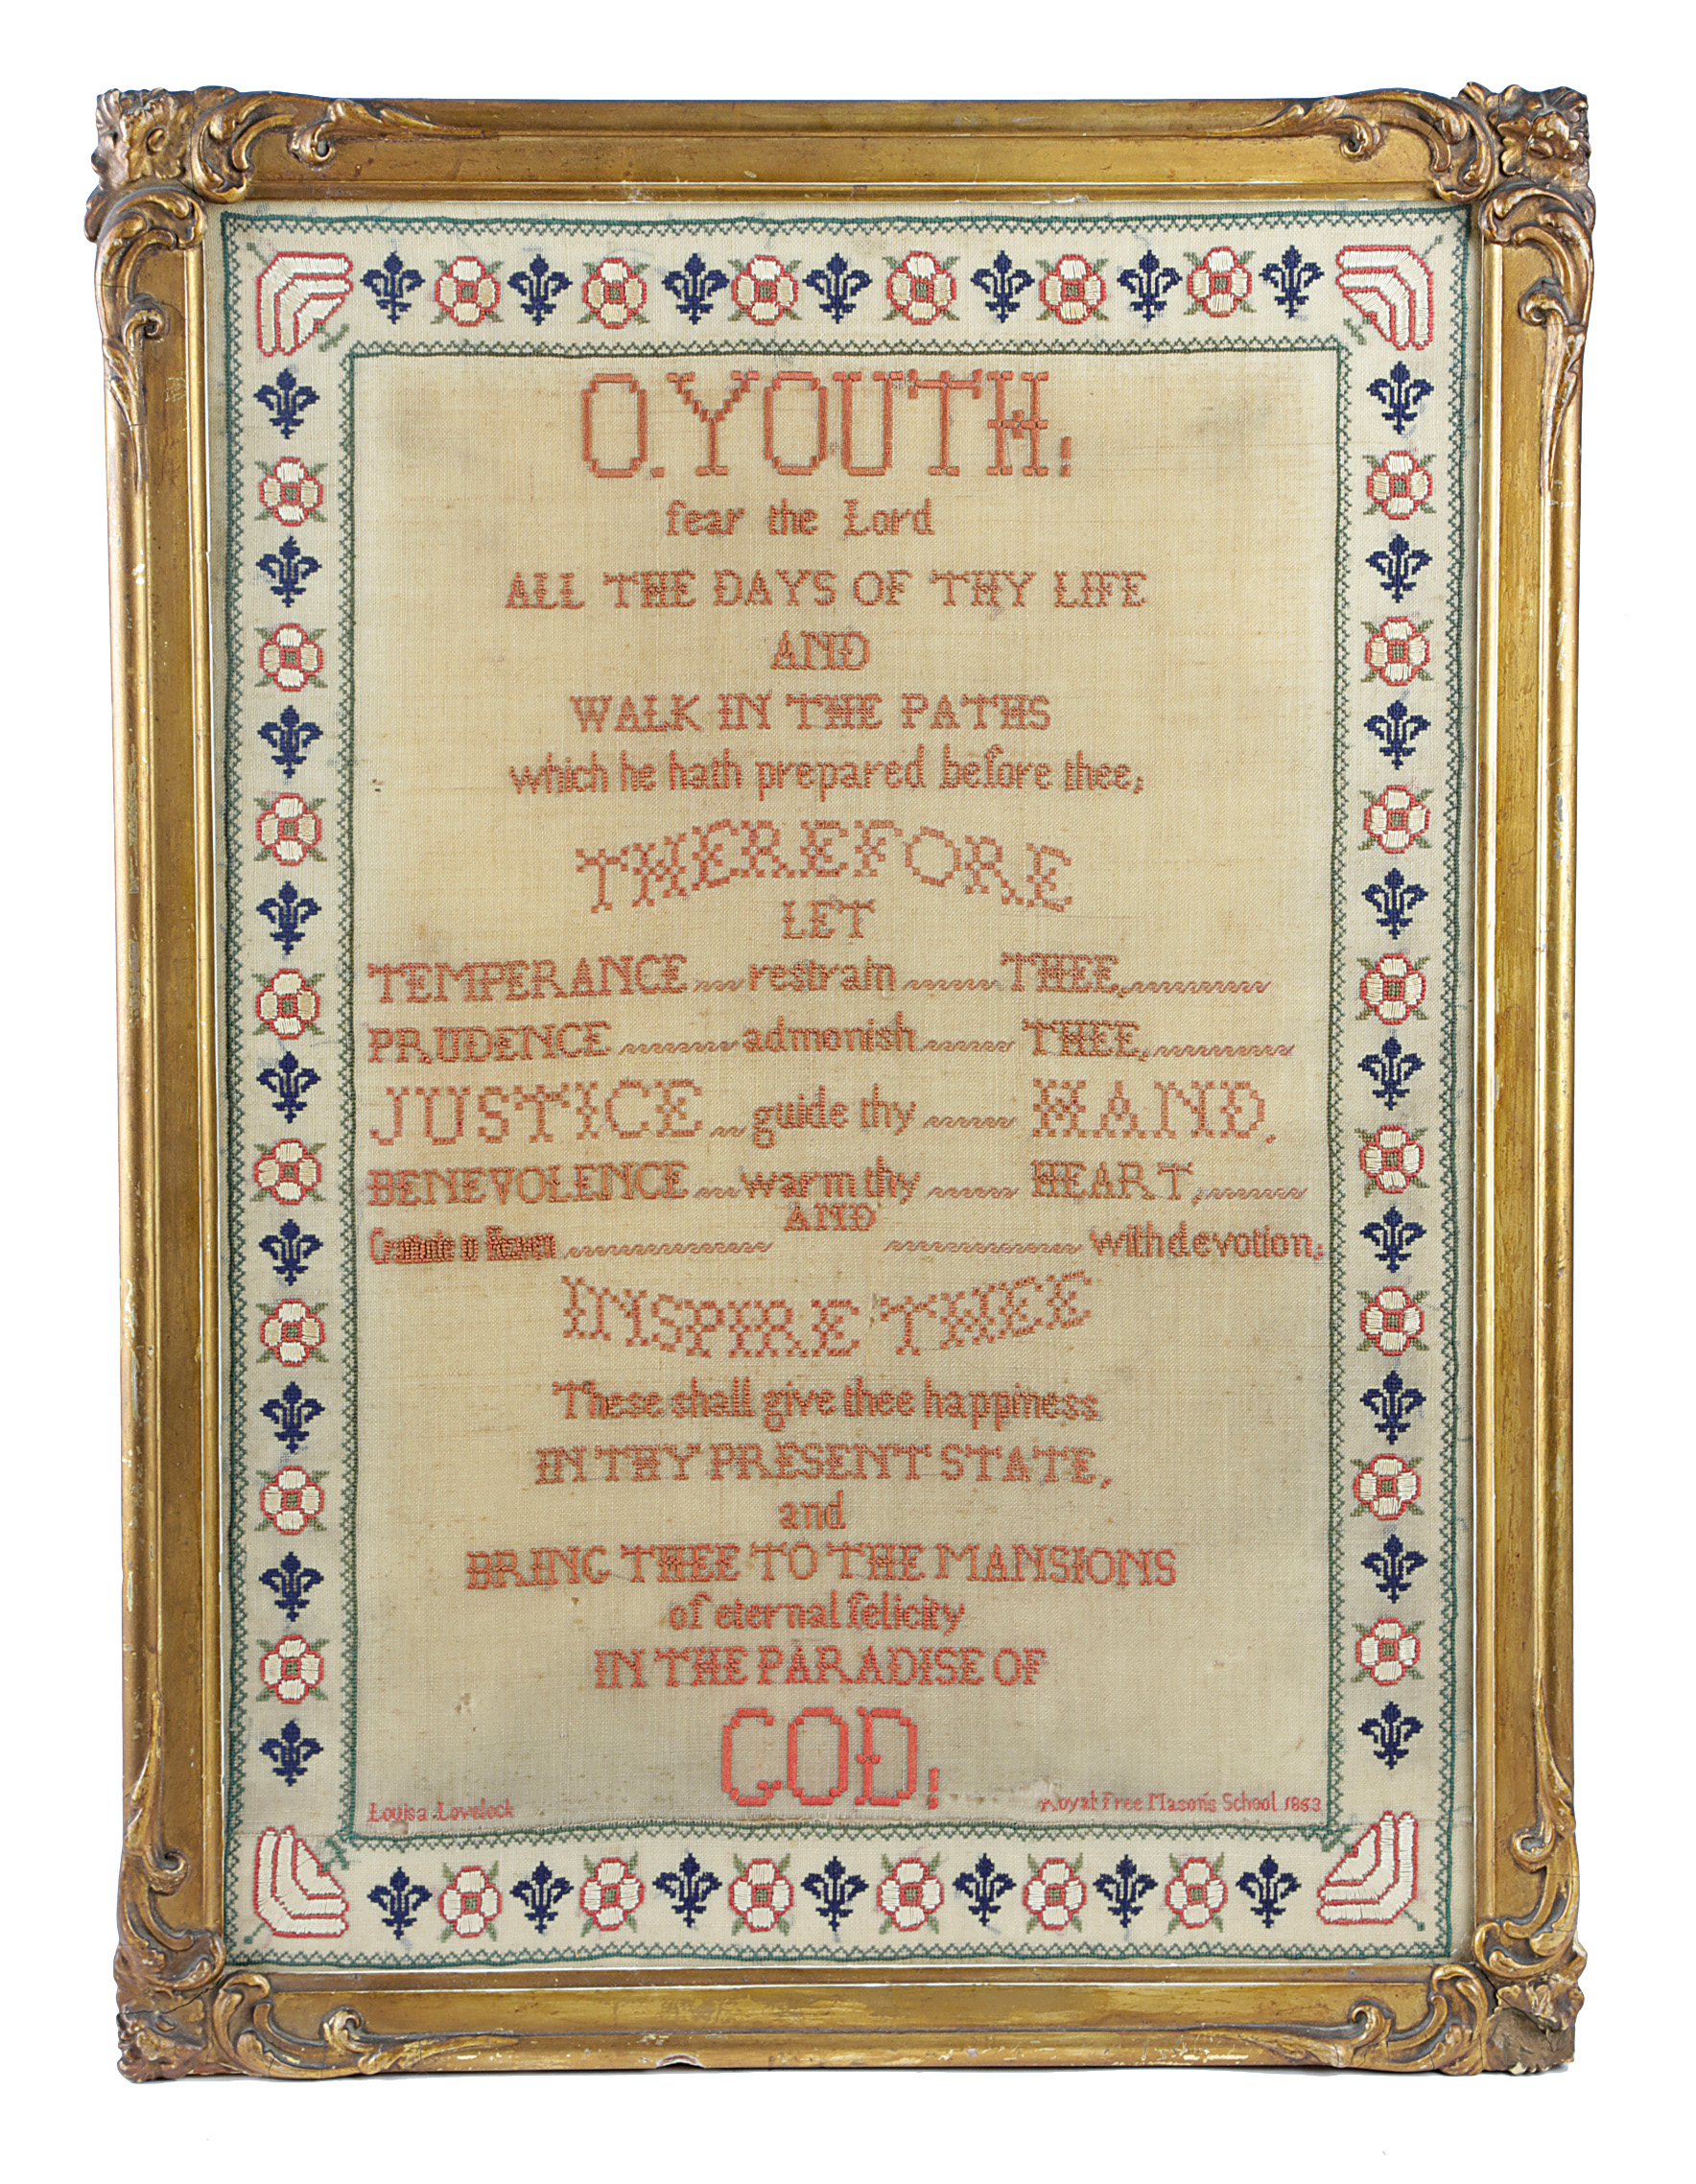 O. YOUTH;
fear the Lord
ALL THE DAYS OF THY LIFE
AND
WALK IN THE PATHS
which he hath prepared before thee;
THEREFORE
LET
TEMPERANCE restrain THEE,
PRUDENCE admonish THEE,
JUSTICE guide thy HAND,
BENEVOLENCE warm thy HEART,
AND
Gratitude to Heaven with devotion;
INSPIRE THEE
These shall give thee happiness
IN THY PRESENT STATE,
and
BRING THEE TO THE MANSIONS
of eternal felicity
IN THE PARADISE OF
GOD;
Louisa Lovelock Royal Free Mason's School 1853